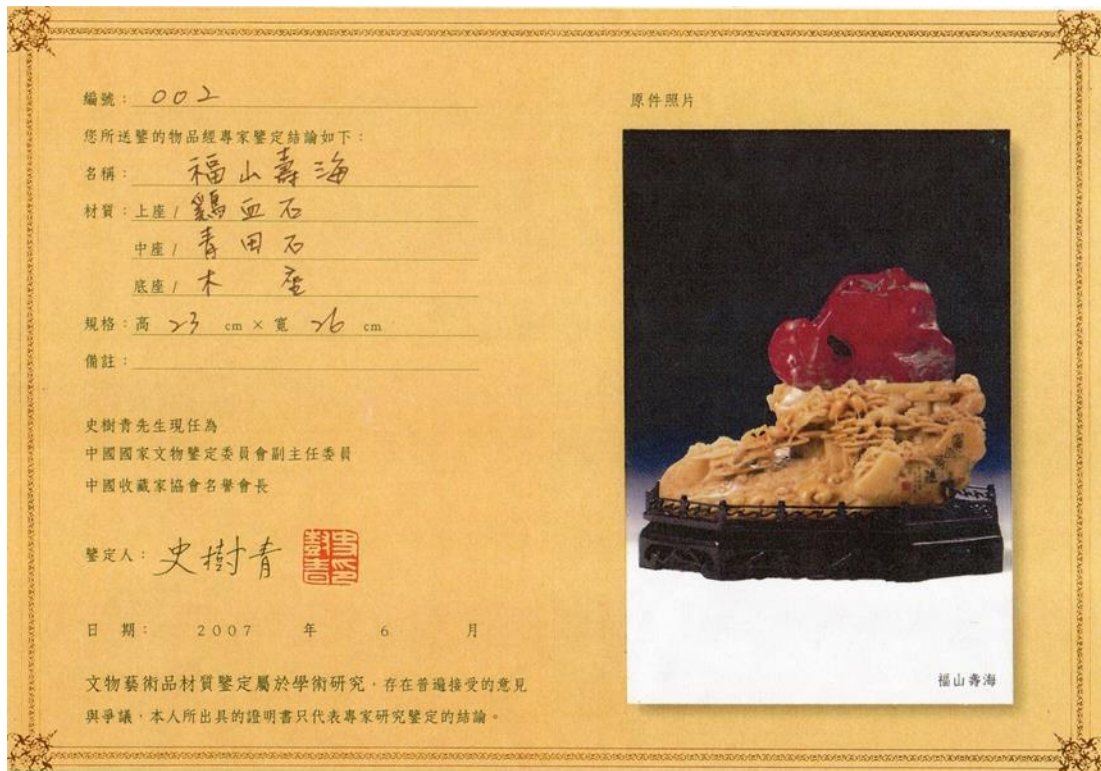 編號：002
您所送鑒的物品經專家鑒定結論如下：
名稱：福山壽海
材質：上座/鷄血石
中座/青田石
底座/木座
規格：高 23 cm × 寬 26 cm
備註：
史樹青先生現任為
中國國家文物鑒定委員會副主任委員
中國收藏家協會名譽會長
鑒定人：史樹青
史印樹青
日期：2007年6月
文物藝術品材質鑒定屬於學術研究，存在普遍接受的意見
與爭議，本人所出具的證明書只代表專家研究鑒定的結論。
原件照片
福山壽海